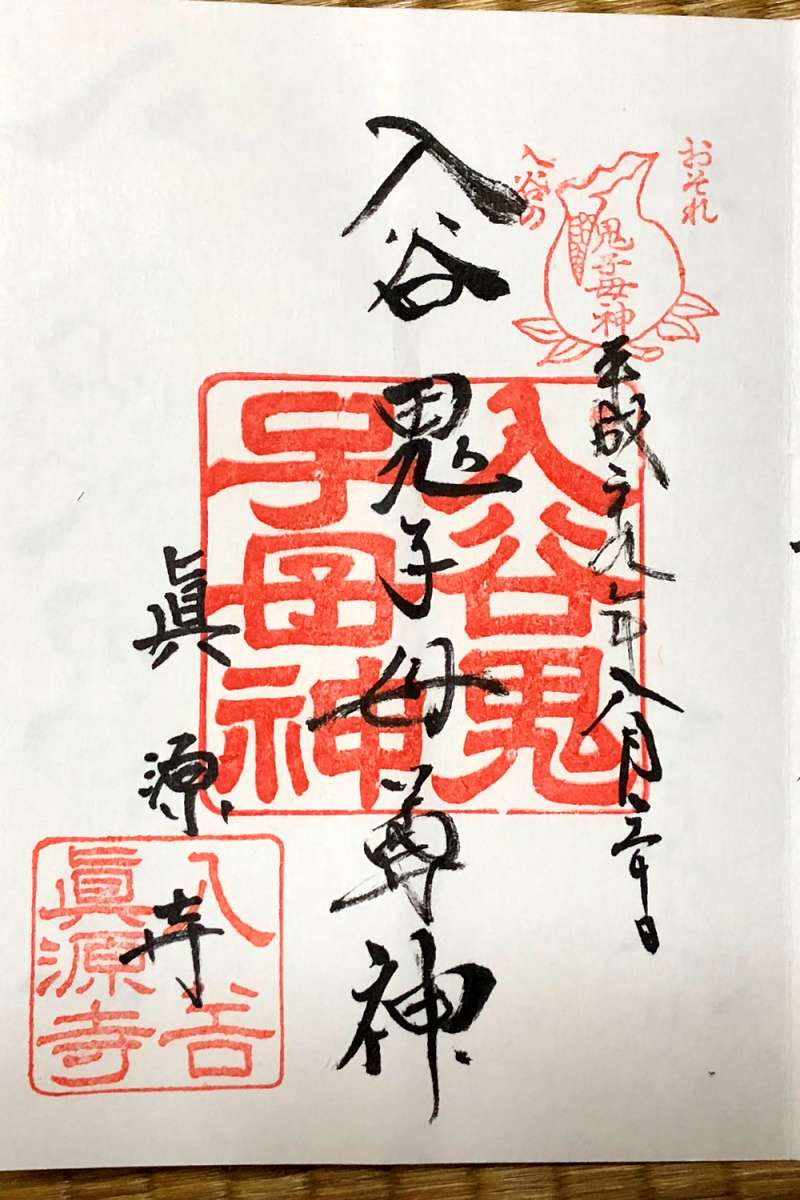 おそれ
入谷の
鬼子母神
平成二十九年八月三十日
入谷鬼子母尊神
入谷鬼
子母神
眞源寺
入谷
眞源寺